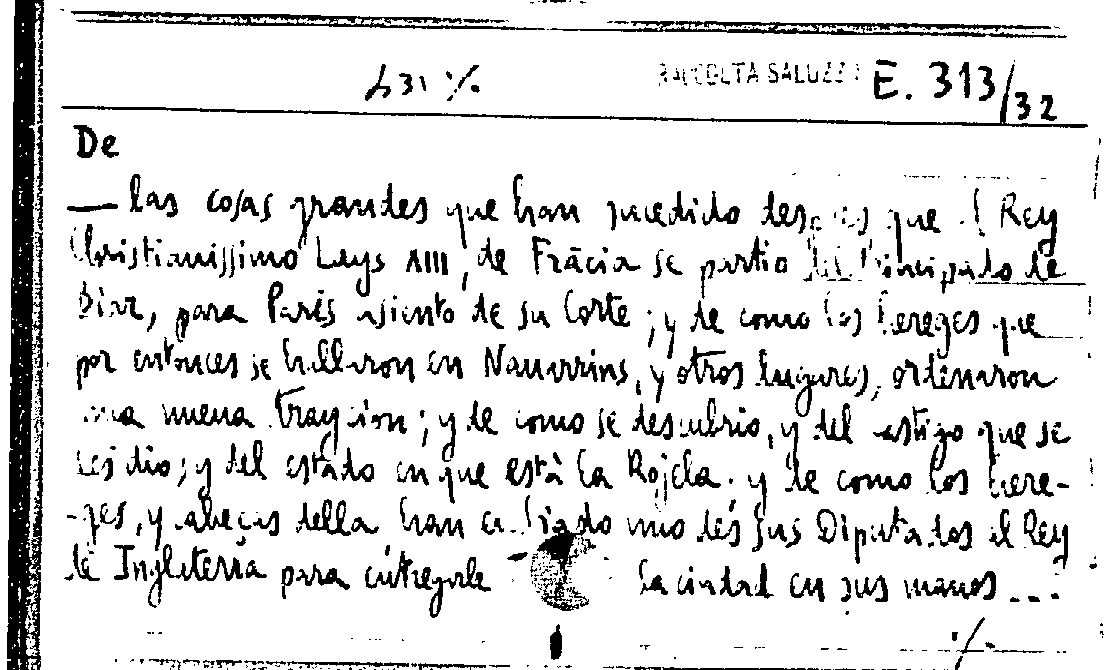 431 %. RACCOLTA SALUZZO E. 313/32
De
— las cosas grandes que han sucedido despues que el Rey
Christianissimo Luys XIII, de Frãcia se partio del Principado de
Biar, para Paris asiento de su Corte; y de como los hereges que
por entonces se hallaron en Nauarrins, y otros lugares, ordenaron
una nueua traycion; y de como se descubrio, y del castigo que se
les dio; y del estado en que està la Rojela. y de como los here-
-ges, y cabeças della han embiado uno de sus Diputados al Rey
de Inglaterra para ẽtregarle la ciudad en sus manos ...
%.